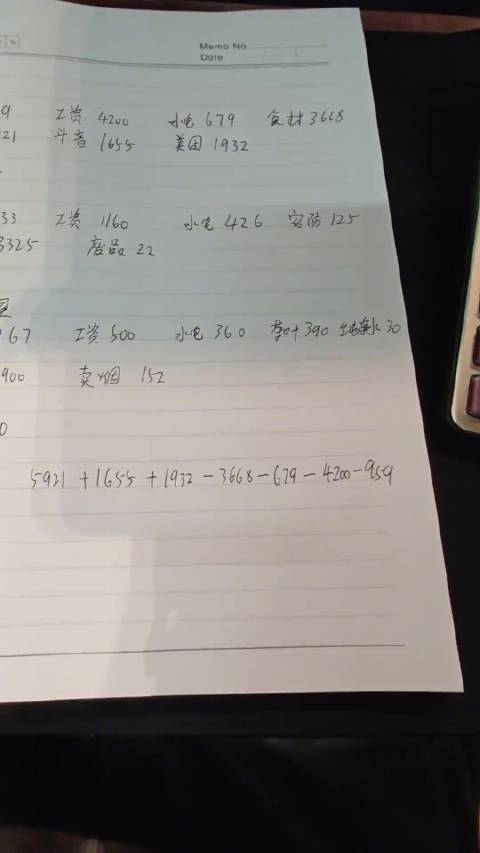 Memo No
Date
9 工资 4200 水电 679 食材 3668
21 斗音 1655 美团 1932
33 工资 1160 水电 426 安防 125
3325 废品 22
67 工资 500 水电 360 茶叶 390 纯净水 30
900 卖烟 152
0
5921 + 1655 + 1932 - 3668 - 679 - 4200 - 959